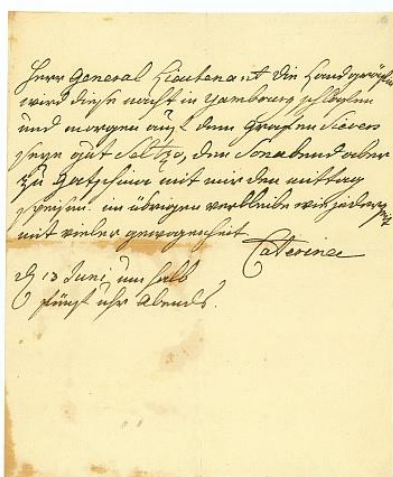 Herr General Lieutenant die Landgräfin
wird diese nacht in Yambourg schlafen
und morgen auf dem Grafen Sievers
seyn gut Seltzo, den Sonabend aber
zu Gatschina mit mir den mittag
speisen. im übrigen verbleibe wie jederzeit
mit vieler gewogenheit
Caterina
d 13 Juni um halb
fünf uhr Abends.